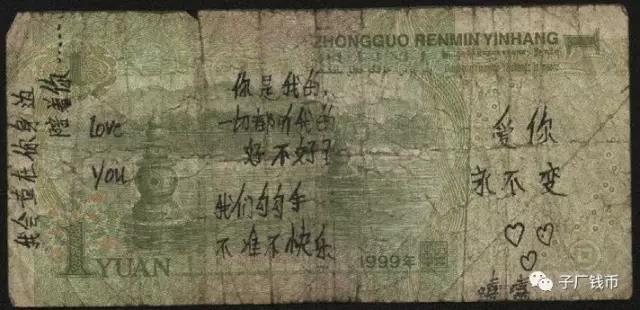 ZHONGGUO RENMIN YINHANG
1
我会一直在你身边
陪着你......
love
you
你是我的,
一切都听我的
好不好?
我们勾勾手
不准不快乐
爱你
永不变
嘻嘻
1 YUAN
1999年
子厂钱币